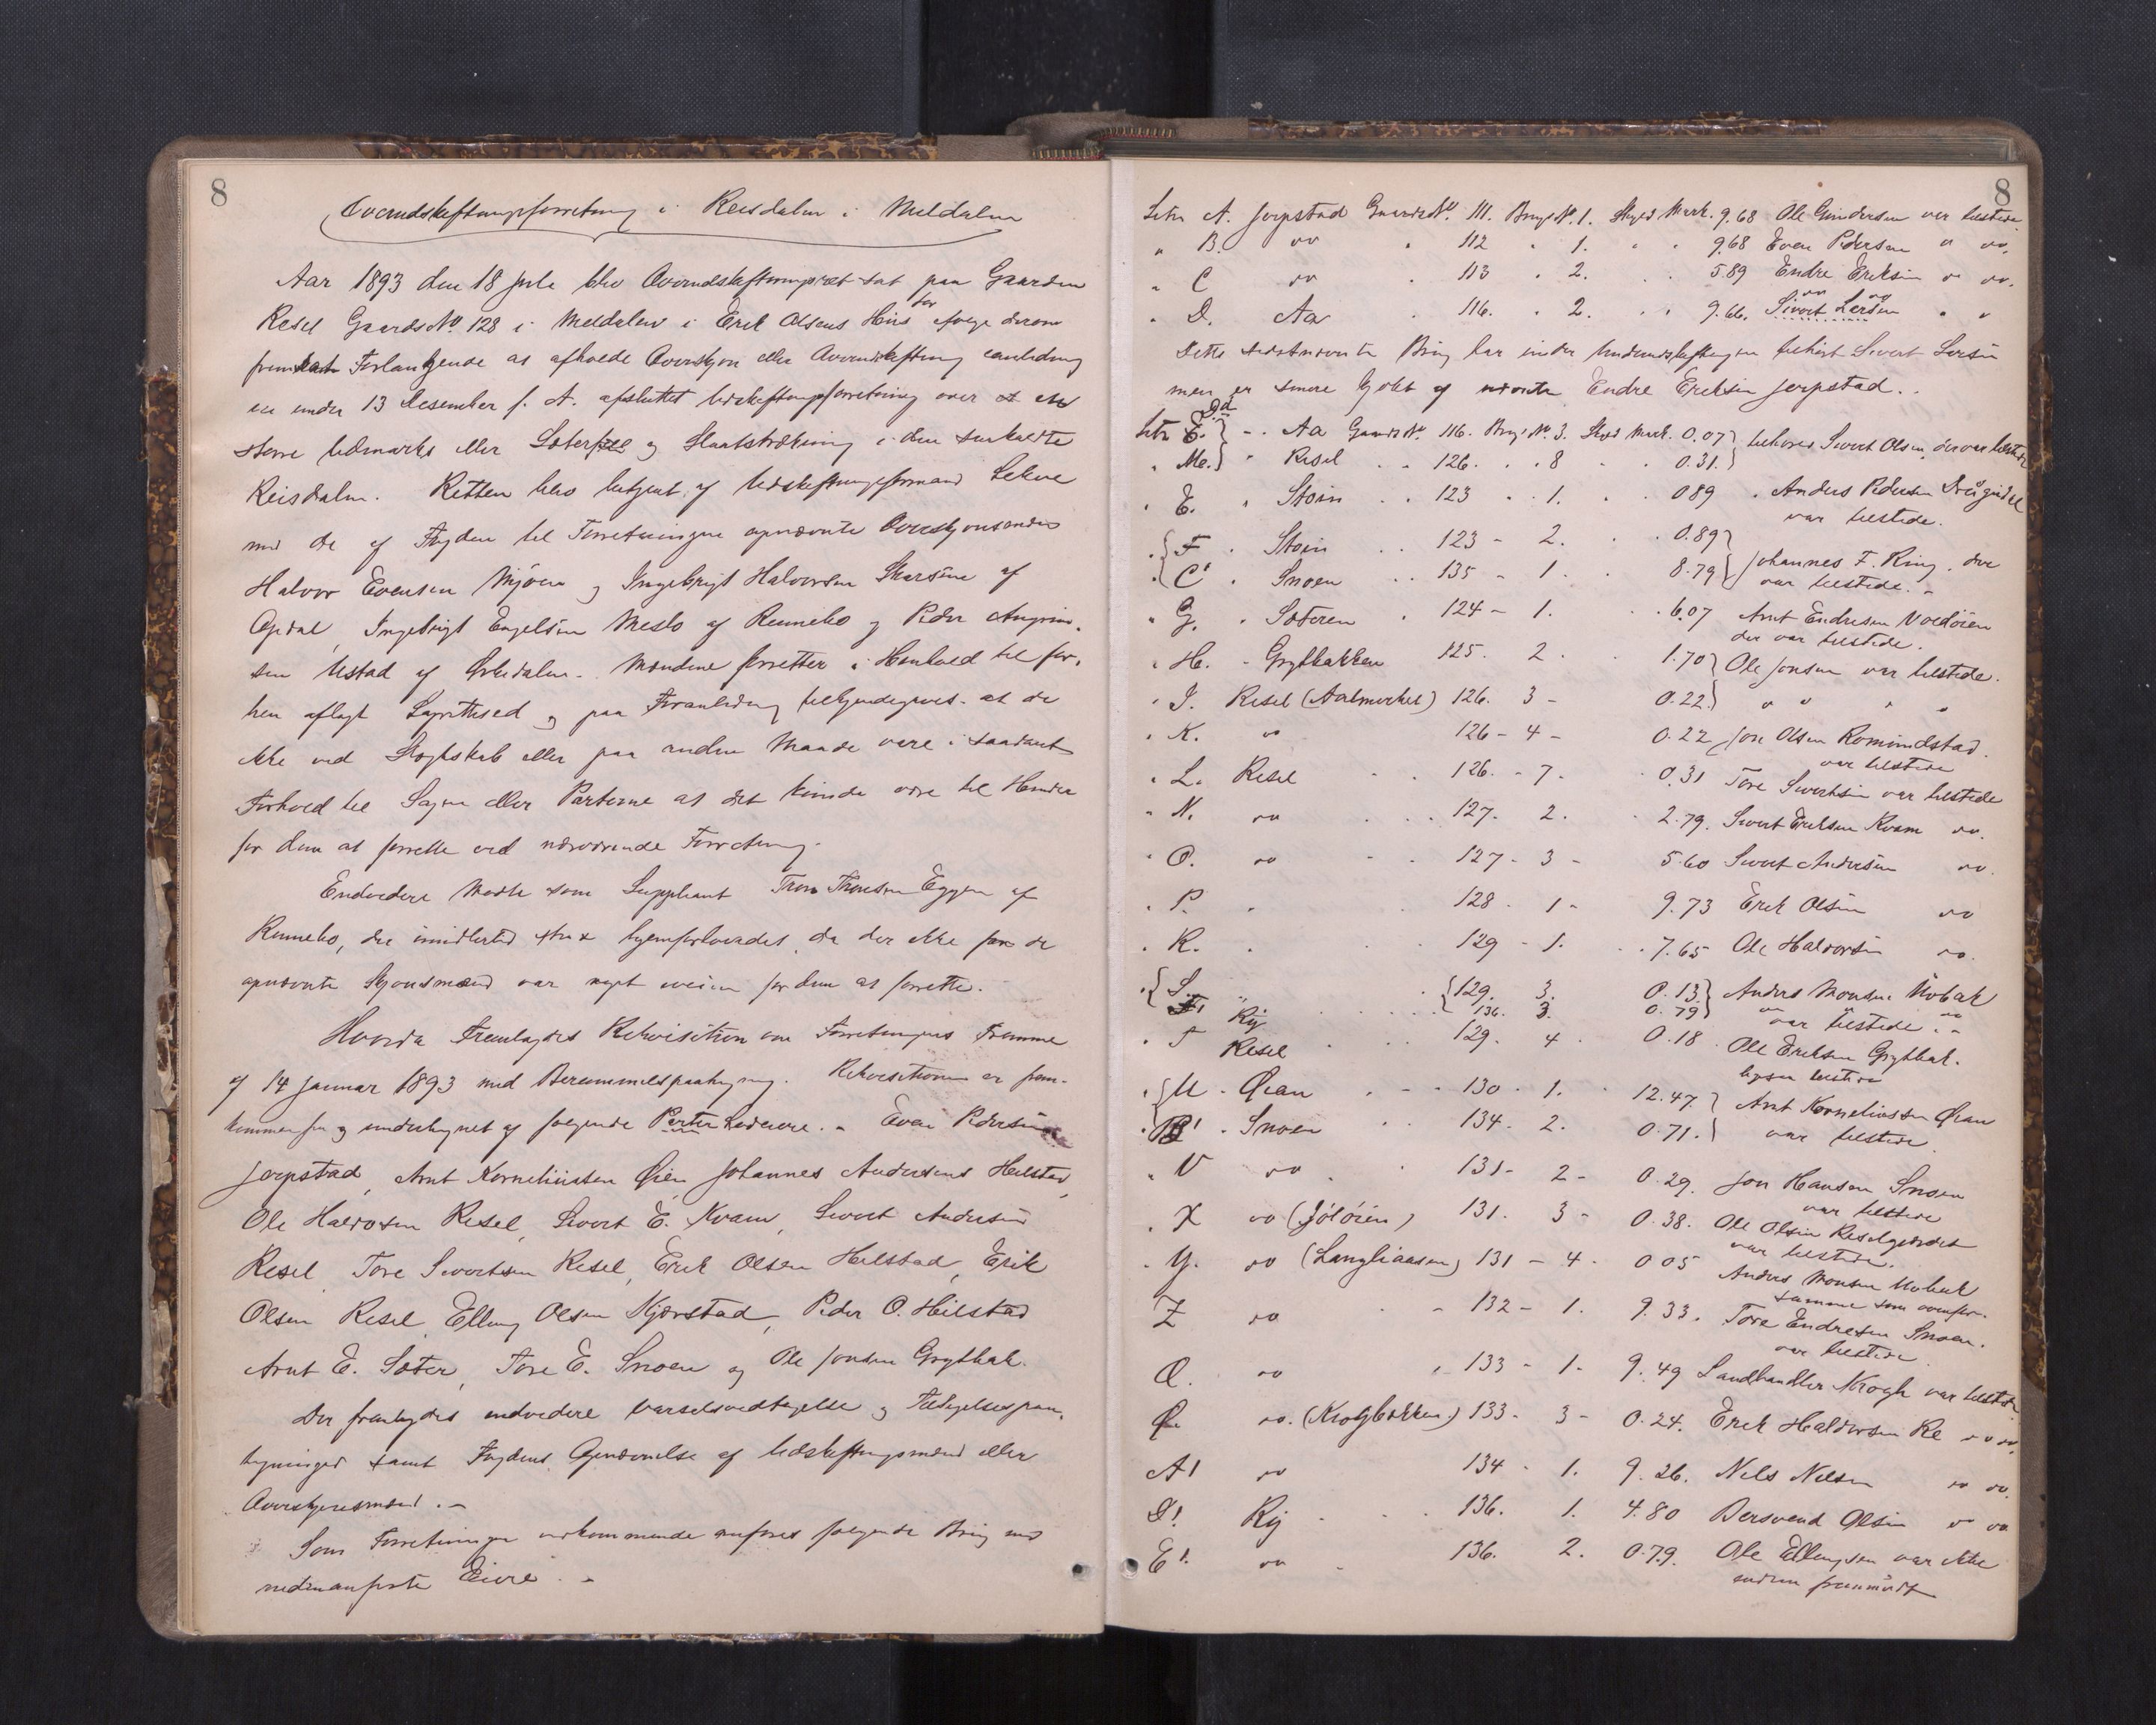 8
Overudskiftningsforretning i Reisdalen i Meldalen
Aar 1893 den 18 Juli blev Overudskiftningsret sat paa Gaarden
Resel Gaards No 128 i Meldalen i Erik Olsens Hus for ifølge derom
fremsat Forlangende at afholde Overskjøn eller Overudskiftning anledning
en under 13 Desember f. A. afsluttet Udskiftningsforretning over et
større Udmarks eller Sæter og Slaatstrækning i den saakaldte
Reisdalen. Retten blev betjent af Udskiftningsformand
med de af Fogden til Forretningen opnævnte Overskjønsmænd
Halvor Evensen Mjøen og Ingebrigt Halvorsen Skarsem af
Opdal, Ingebrigt Engelsen Meslo af Rennebo og Peder
sen Ustad af Orkedalen. Mændene forretter i Henhold til før-
hen aflagt Lagrettesed og paa Foranledning tilkjendegaves at de
ikke ved Slægtskab eller paa anden Maade vare i saadant
Forhold til Sagen eller Parterne at det kunde være til Hinder
for dem at forrette ved nærværende Forretning.
Endvidere mødte som Suppleant Tron Thonsen Eggen af
Rennebo, der imidlertid strax hjemforlovedes, da der ikke for de
opnævnte Skjønsmænd var noget iveien for dem at forrette.
Hvorda fremlagdes Rekvisition om Forretningens Fremme
af 14 Januar 1893 med Berammelsespaategning. Rekvisitionen er frem-
kommen fra og undertegnet af følgende Parter Lodeiere. - Even Pedersen
Jerpstad, Arnt Korneliussen Øien, Johannes Andersens Helstad,
Ole Halvorsen Resel, Sivert E. Kvam, Sivert Andersen
Resel, Tore Sivertsen Resel, Erik Olsen Helstad, Erik
Olsen Resel, Elling Olsen Kjerstad, Peder O. Hilstad
Arnt E. Sæter, Tore E. Snoen og Ole Jonsen Grytbak.
Der fremlagdes endvidere Varselsvedtagelse og
tegninger samt Fogdens Opnævnelse af Udskiftningsmænd eller
Overskjønsmænd. -
Som Forretningen vedkommende anføres følgende Brug med
nedenanførte Eiere. -
8
Litr A. Jerpstad Gaards No. 111. Brugs No. 1. Skyld Mark. 9.68 Ole Gundersen var tilstede
" B. do " 112 " 1. " " 9.68 Even Pedersen " do.
" C do " 113 " 2. " 5.89 Endre Eriksen " do.
" D. Aa " 116. " 2. " 9.66. Sivert Larsen " "
Dette sidstnævnte Brug har under Underudskiftningen tilhørt Sivert Larsen
men er senere kjøbt af nævnte Endre Eriksen Jerpstad.
Litr Dd. - Aa Gaards No. 116. Brugs No. 3. Skyld Mark. 0.07 } tilhører Sivert Olsen, der var tilstede
" Me. } " Resel " " 126. " 8 " 0.31. }
" E. " Stoin " " 123 " 1. " 0.89 " Anders Pedersen
var tilstede.
" { F " Stoin " 123 - 2. " 0.89 }
" { C' " Snoen " " 135 - 1 " 8.79 } Johannes F. Ring, der
var tilstede. -
" G. " Sæteren " 124 - 1. " 6.07 Arnt Endresen
der var tilstede.
" H. - Grytbakken 125. 2. 1.70 } Ole Jonsen var tilstede.
" I. Resel (Aalmerket) 126. 3 - 0.22 } " " " "
" K. do 126 - 4 - 0.22 Jon Olsen Romundstad.
var tilstede
" L. Resel - 126. - 7. 0.31 Tore Sivertsen var tilstede
" N. do " " 127. 2. 2.79. Sivert Eriksen Kvam do.
" O. do - " 127 - 3 - 5.60 Sivert Andersen do.
" P. " 128 - 1 - 9.73 Erik Olsen do
" R. " 129 - 1. 7.65 Ole Halvorsen do.
" { S. " { 129. 3. 0.13 } Anders Monsen Mobak
F' Rij 136. 3. 0.79 } var tilstede. -
" T Resel 129. 4 0.18 Ole Eriksen Grytbak.
tilstede
" { U - Øian - " 130 - 1. 12.47. } Arnt Korneliussen Øian
" B' . Snoen " 134. 2. 0.71. } var tilstede
" V do " 131 - 2 - 0.29. Jon Hansen Snoen
var tilstede
" X do (Jóløien) 131. 3 - 0.38. Ole Olsen Reselgjerdet
var tilstede.
" Y. do (Langliaasen) 131 - 4 - 0 05 Anders Monsen Mobak
samme som ovenfor.
Z do - 132 - 1. 9.33. Tore Endresen Snoen.
var tilstede
Q. do " 133 - 1 - 9.49 Landhandler Krogh var tilstede
Ø. do. (Krogbakken) 133 - 3 - 0.24. Erik Haldorsen Re do do.
A' do 134 - 1. 9.26. Nils Nilsen do do.
D'. Rij " " 136. 1. 4.80 Bersvend Olsen do do
E'. do - 136. 2. 0.79. Ole Ellingsen var ikke
fremmødt